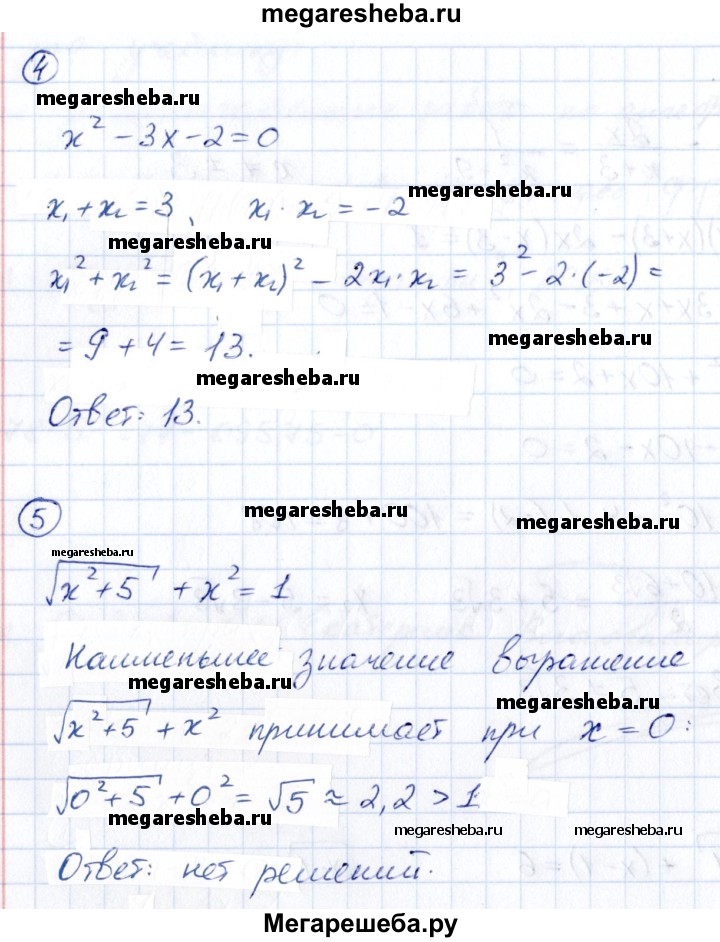 megaresheba.ru
4
megaresheba.ru
x² - 3x - 2 = 0
megaresheba.ru
x₁ + x₂ = 3, x₁ · x₂ = -2
megaresheba.ru
x₁² + x₂² = (x₁ + x₂)² - 2x₁ · x₂ = 3² - 2 · (-2) =
megaresheba.ru
= 9 + 4 = 13.
megaresheba.ru
Ответ: 13.
5
megaresheba.ru
megaresheba.ru
megaresheba.ru
√(x² + 5) + x² = 1
Наименьшее значение выражение
megaresheba.ru
megaresheba.ru
√(x² + 5) + x² принимает при x = 0:
√(0² + 5) + 0² = √5 ≈ 2,2 > 1
megaresheba.ru
megaresheba.ru
megaresheba.ru
Ответ: нет решений.
Мегарешеба.ру